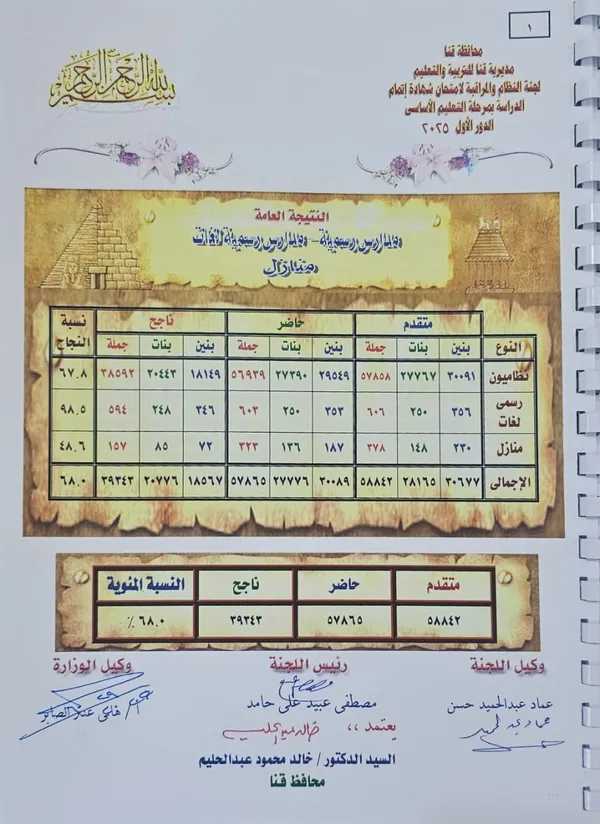 ١
محافظة قنا
مديرية قنا للتربية والتعليم
لجنة النظام والمراقبة لامتحان شهادة إتمام
الدراسة بمرحلة التعليم الأساسى
الدور الأول ٢٠٢٥
بسم الله الرحمن الرحيم
النتيجة العامة
مدارس رسمية - مدارس رسمية لغات
منازل
النوع متقدم حاضر ناجح نسبة النجاح
بنين بنات جملة بنين بنات جملة بنين بنات جملة
نظاميون ٣٠٠٩١ ٢٧٧٦٧ ٥٧٨٥٨ ٢٩٥٤٩ ٢٧٣٩٠ ٥٦٩٣٩ ١٨١٤٩ ٢٠٤٤٣ ٣٨٥٩٢ ٦٧.٨
رسمى لغات ٣٥٦ ٢٥٠ ٦٠٦ ٣٥٣ ٢٥٠ ٦٠٣ ٣٤٦ ٢٤٨ ٥٩٤ ٩٨.٥
منازل ٢٣٠ ١٤٨ ٣٧٨ ١٨٧ ١٣٦ ٣٢٣ ٧٢ ٨٥ ١٥٧ ٤٨.٦
الإجمالى ٣٠٦٧٧ ٢٨١٦٥ ٥٨٨٤٢ ٣٠٠٨٩ ٢٧٧٧٦ ٥٧٨٦٥ ١٨٥٦٧ ٢٠٧٧٦ ٣٩٣٤٣ ٦٨.٠
متقدم حاضر ناجح النسبة المئوية
٥٨٨٤٢ ٥٧٨٦٥ ٣٩٣٤٣ ٦٨.٠ %
وكيل اللجنة رئيس اللجنة وكيل الوزارة
عماد عبدالحميد حسن مصطفى عبيد على حامد
يعتمد ،،
السيد الدكتور / خالد محمود عبدالحليم
محافظ قنا